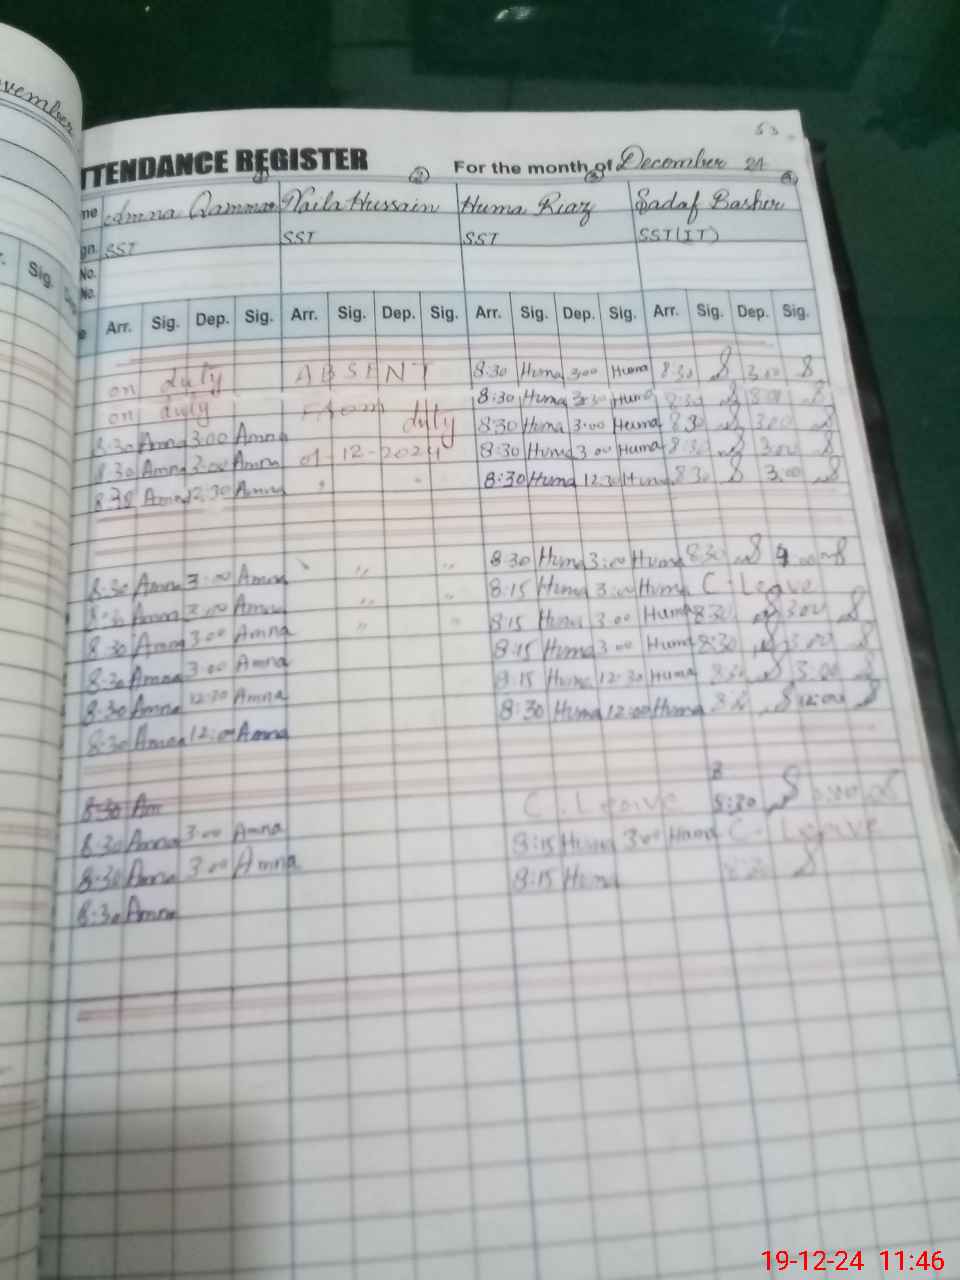 vember
53
TTENDANCE REGISTER For the month of December 24
1 2 3 4
me Amna Qammar Naila Hussain Huma Riaz Sadaf Basher
gn. SST SST SST SST(IT)
No.
No.
r. Sig.
e Arr. Sig. Dep. Sig. Arr. Sig. Dep. Sig. Arr. Sig. Dep. Sig. Arr. Sig. Dep. Sig.
on duty ABSENT 8:30 Huma 3:00 Huma 8:30 3:00
on duty From duty 8:30 Huma 3:30 Huma 8:30 3:00
8:30 Amna 3:00 Amna 8:30 Huma 3:00 Huma 8:30 3:00
8:30 Amna 3:00 Amna 01-12-2024 8:30 Huma 3:00 Huma 8:30 3:00
8:30 Amna 12:30 Amna " " 8:30 Huma 12:30 Huma 8:30 3:00
8:30 Amna 3:00 Amna " " 8:30 Huma 3:00 Huma 8:30
8:30 Amna 3:00 Amna " " 8:15 Huma 3:00 Huma C-Leave
8:30 Amna 3:00 Amna " " 8:15 Huma 3:00 Huma 8:30 3:00
8:30 Amna 3:00 Amna 8:15 Huma 3:00 Huma 8:30 3:00
8:30 Amna 12:30 Amna 8:15 Huma 12:30 Huma 8:30 3:00
8:30 Amna 12:00 Amna 8:30 Huma 12:00 Huma 12:00
8:30 Am C.Leave 8:30
8:30 Amna 3:00 Amna 8:15 Huma 3:00 Huma C-Leave
8:30 Amna 3:00 Amna 8:15 Huma 8:30
8:30 Amna
19-12-24 11:46